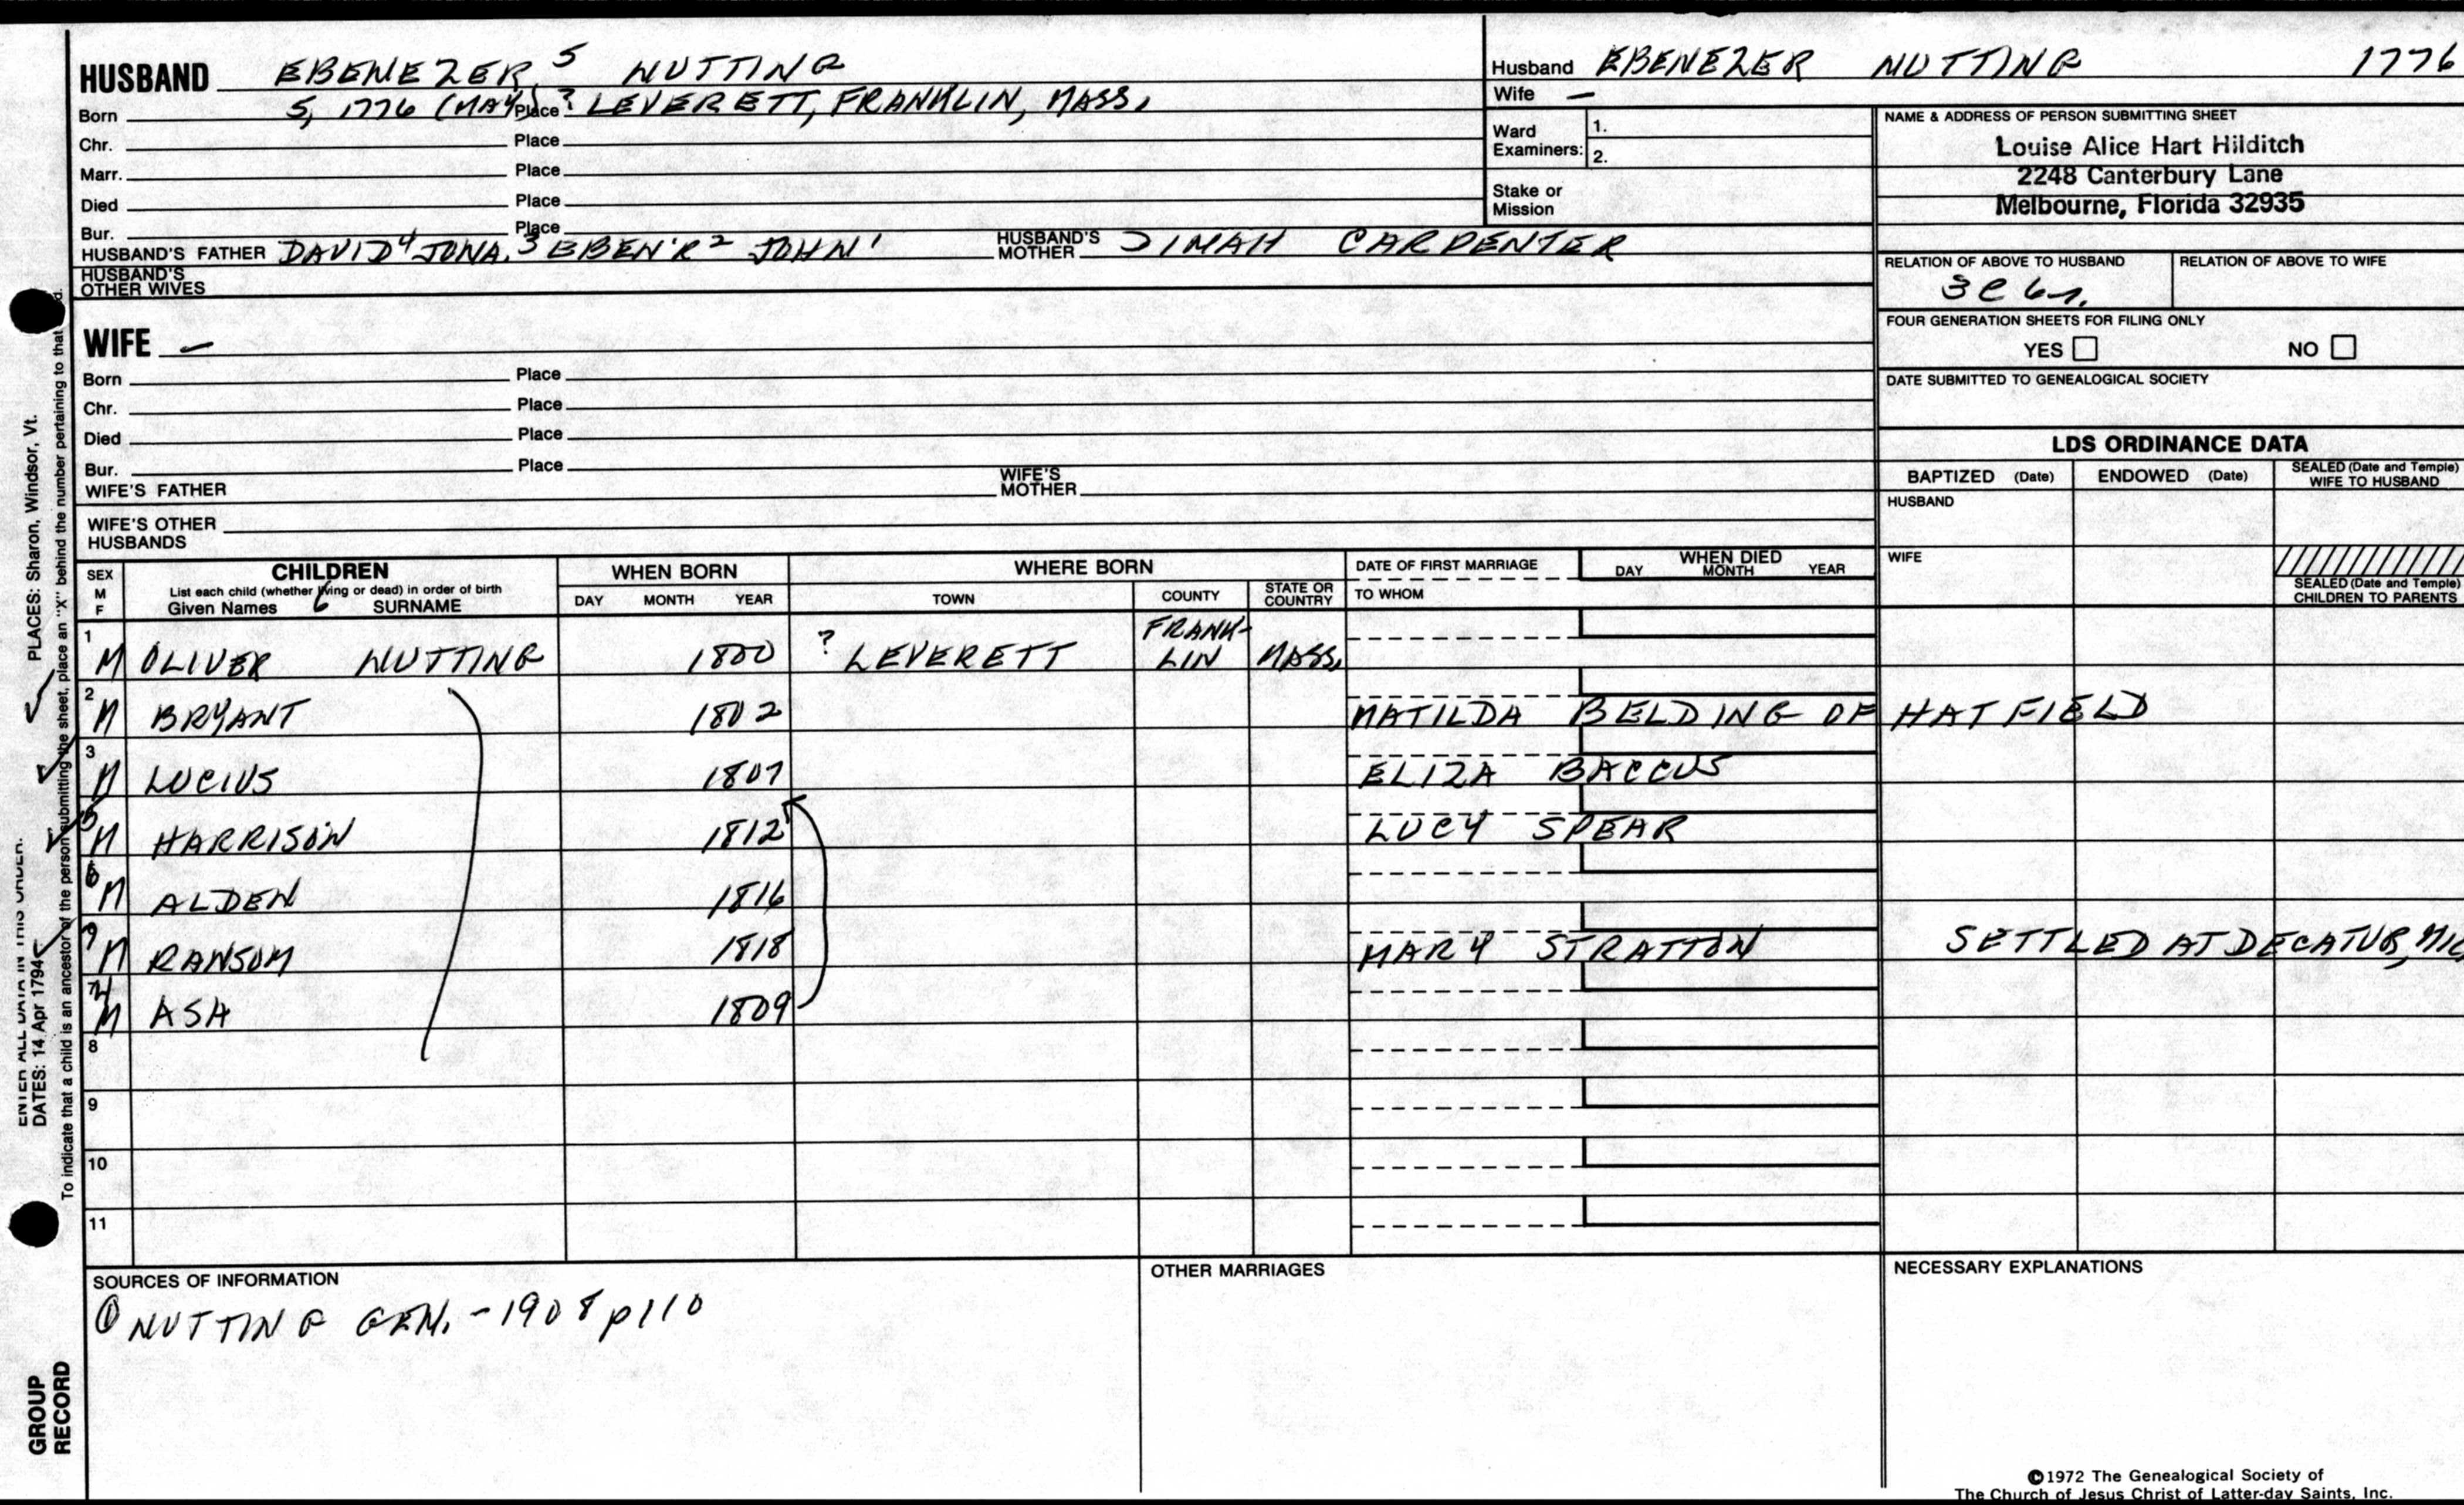 HUSBAND EBENEZER 5 NUTTING
Born 5, 1776 (MAY) Place ? LEVERETT, FRANKLIN, MASS,
Chr. Place
Marr. Place
Died Place
Bur. Place
HUSBAND'S FATHER DAVID 4 JONA. 3 EBEN'R 2 JOHN 1 HUSBAND'S MOTHER DINAH CARPENTER
HUSBAND'S OTHER WIVES
Husband EBENEZER NUTTING 1776
Wife —
Ward Examiners: 1.
2.
Stake or Mission
NAME & ADDRESS OF PERSON SUBMITTING SHEET
Louise Alice Hart Hilditch
2248 Canterbury Lane
Melbourne, Florida 32935
RELATION OF ABOVE TO HUSBAND RELATION OF ABOVE TO WIFE
3C 6r.
FOUR GENERATION SHEETS FOR FILING ONLY
YES NO
DATE SUBMITTED TO GENEALOGICAL SOCIETY
WIFE —
Born Place
Chr. Place
Died Place
Bur. Place
WIFE'S FATHER WIFE'S MOTHER
WIFE'S OTHER HUSBANDS
LDS ORDINANCE DATA
BAPTIZED (Date) ENDOWED (Date) SEALED (Date and Temple) WIFE TO HUSBAND
HUSBAND
WIFE
SEALED (Date and Temple) CHILDREN TO PARENTS
SEX M F
CHILDREN
List each child (whether living or dead) in order of birth
Given Names 6 SURNAME
WHEN BORN
DAY MONTH YEAR
WHERE BORN
TOWN COUNTY STATE OR COUNTRY
DATE OF FIRST MARRIAGE
TO WHOM
WHEN DIED
DAY MONTH YEAR
1 M OLIVER NUTTING 1800 ? LEVERETT FRANK-LIN MASS,
2 M BRYANT 1802 MATILDA BELDING OF HATFIELD
3 M LUCIUS 1807 ELIZA BACCUS
5 M HARRISON 1812 LUCY SPEAR
6 M ALDEN 1816
7 M RANSOM 1818 MARY STRATTON SETTLED AT DECATUR, MIC
4 M ASA 1809
8
9
10
11
SOURCES OF INFORMATION
① NUTTING GEN. - 1908 p 110
OTHER MARRIAGES
NECESSARY EXPLANATIONS
©1972 The Genealogical Society of
The Church of Jesus Christ of Latter-day Saints, Inc.
ENTER ALL DATA IN THIS ORDER:
DATES: 14 Apr 1794 PLACES: Sharon, Windsor, Vt.
To indicate that a child is an ancestor of the person submitting the sheet, place an "X" behind the number pertaining to that
GROUP RECORD